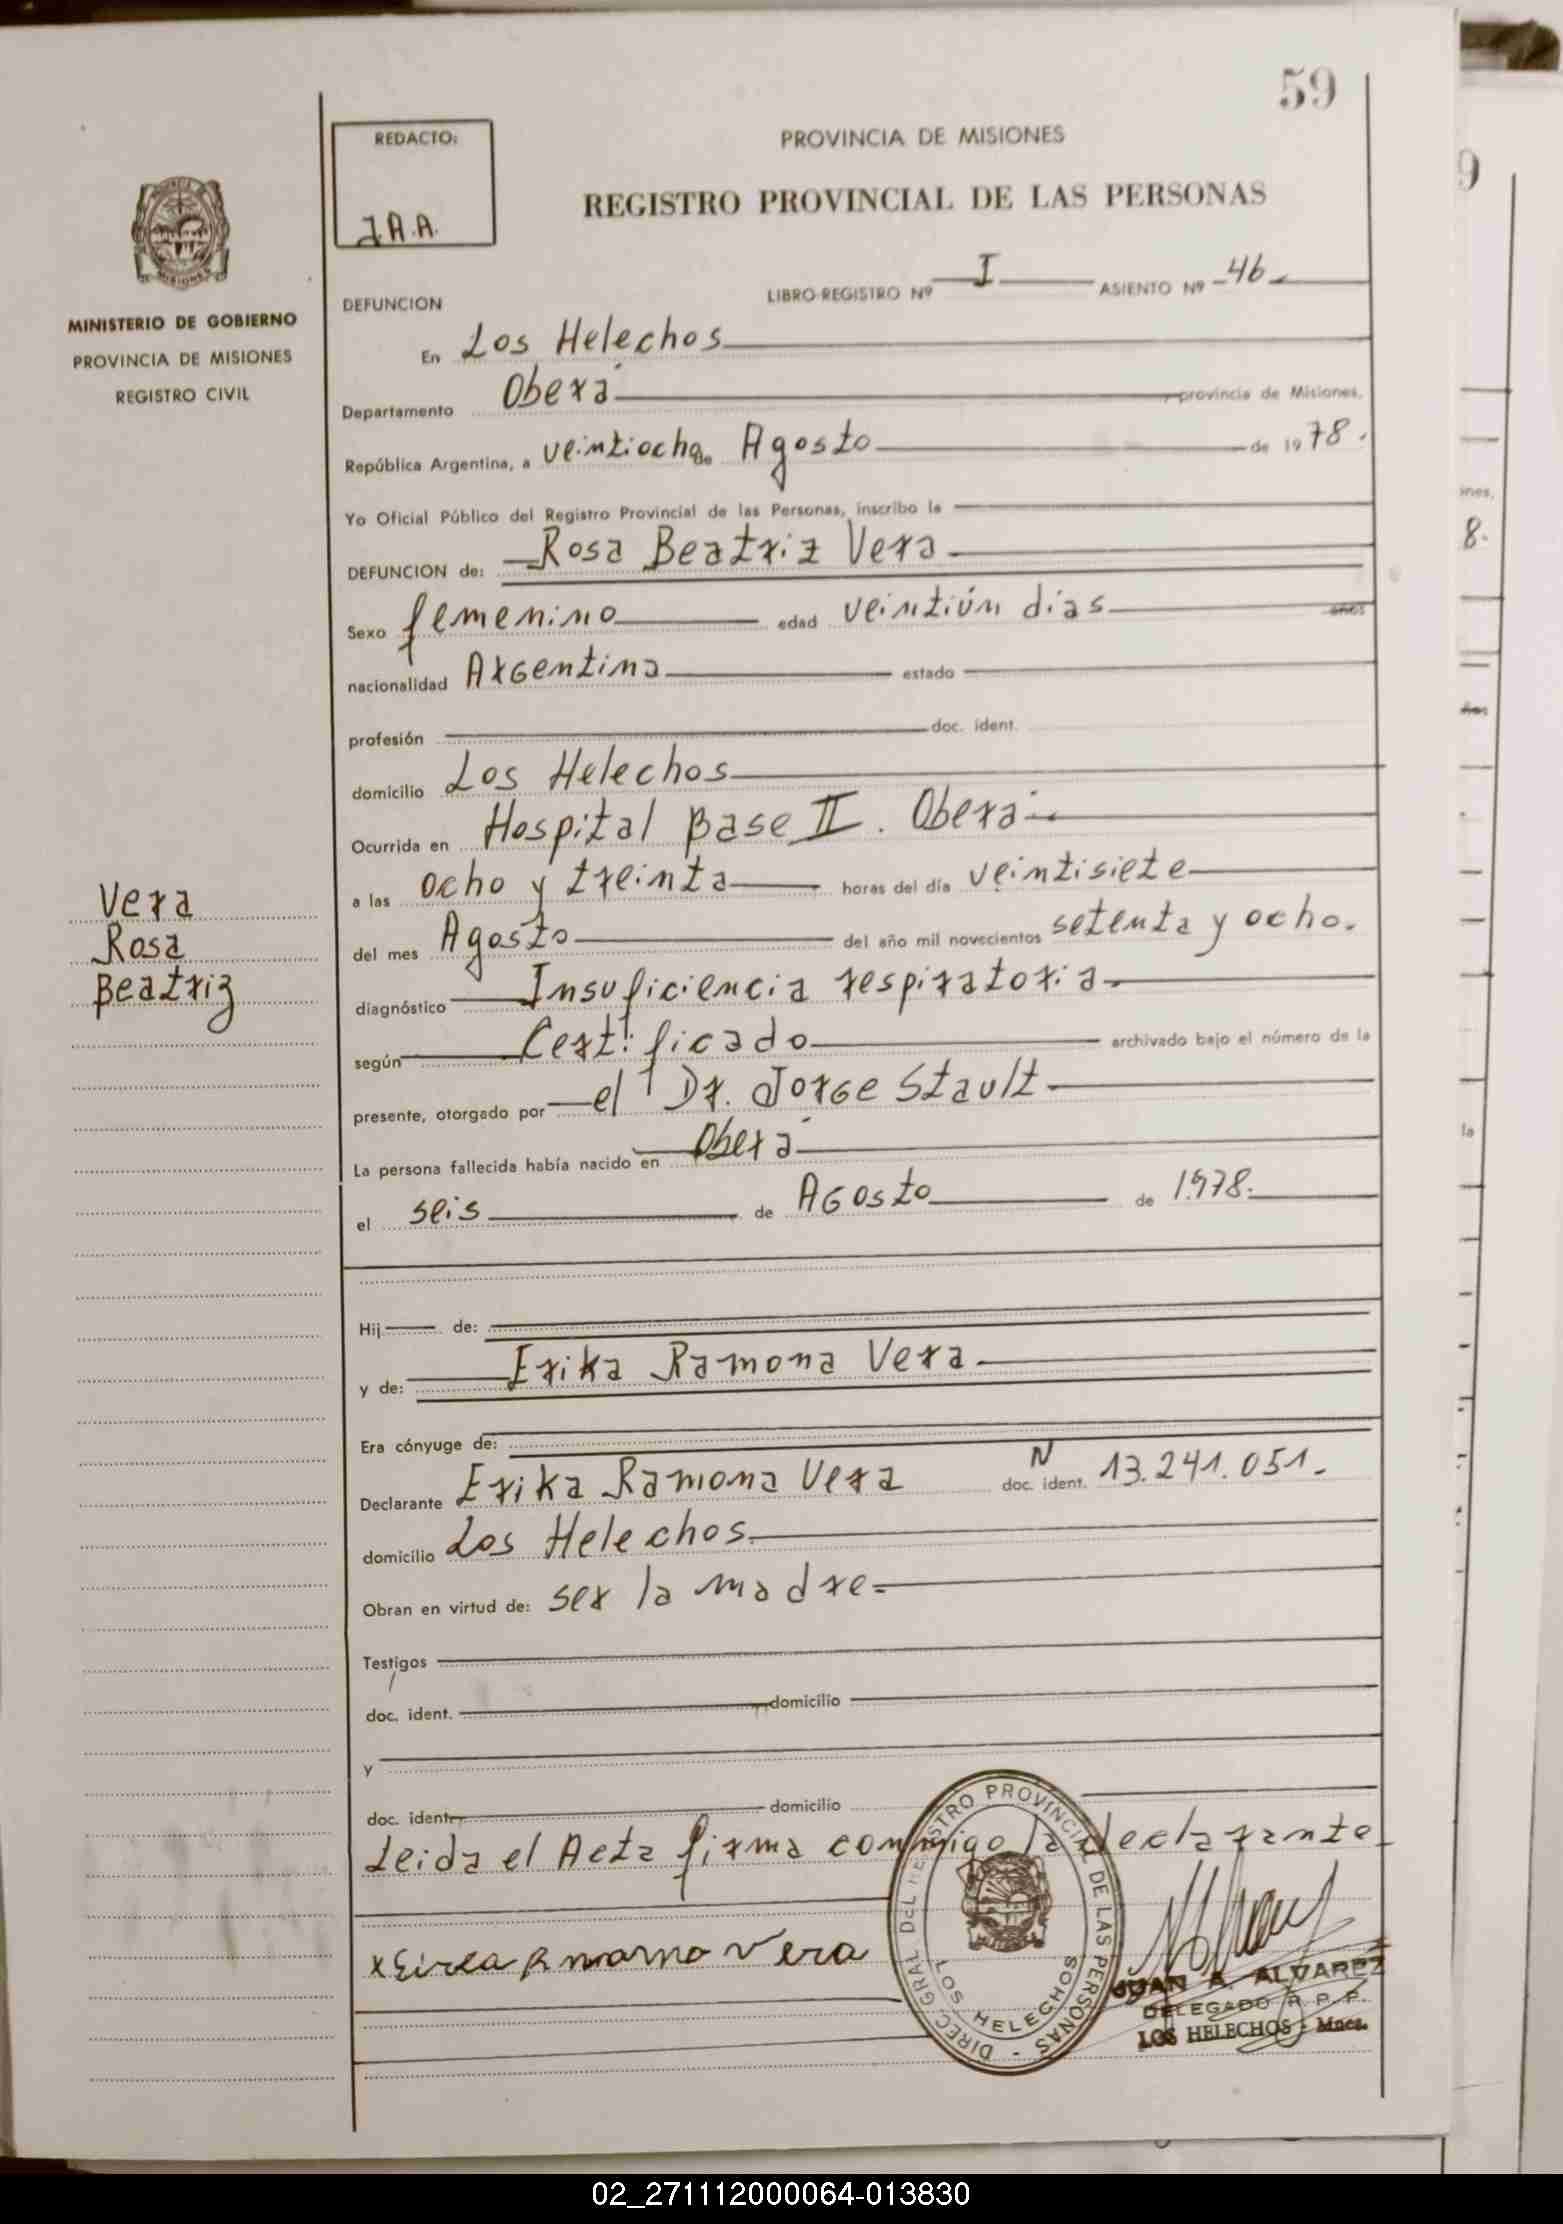 59
REDACTO:
J.A.A.
PROVINCIA DE MISIONES
REGISTRO PROVINCIAL DE LAS PERSONAS
MINISTERIO DE GOBIERNO
PROVINCIA DE MISIONES
REGISTRO CIVIL
LIBRO-REGISTRO Nº I ASIENTO Nº 46
DEFUNCION
En Los Helechos
Departamento Oberá provincia de Misiones,
República Argentina, a veintiocho de Agosto de 1978.
Yo Oficial Público del Registro Provincial de las Personas, inscribo la
DEFUNCION de: Rosa Beatriz Vera
Sexo femenino edad veintiún días años
nacionalidad Argentina estado
profesión doc. ident.
domicilio Los Helechos
Ocurrida en Hospital Base II. Oberá
a las ocho y treinta horas del día veintisiete
del mes Agosto del año mil novecientos setenta y ocho.
diagnóstico Insuficiencia respiratoria
según Certificado archivado bajo el número de la
presente, otorgado por el Dr. Jorge Stault
La persona fallecida había nacido en Oberá
el seis de Agosto de 1978.
Vera
Rosa
Beatriz
Hij de:
y de: Erika Ramona Vera
Era cónyuge de:
Declarante Erika Ramona Vera N doc. ident. 13.241.051.
domicilio Los Helechos
Obran en virtud de: ser la madre
Testigos
doc. ident. domicilio
y
doc. ident. domicilio
Leida el Acta firma conmigo la declarante
DIREC GRAL DEL REGISTRO PROVINCIAL DE LAS PERSONAS
LOS HELECHOS
x Eirca Rmamona Vera
JUAN A. ALVAREZ
DELEGADO R. P. P.
LOS HELECHOS - Mnes.
02_271112000064-013830